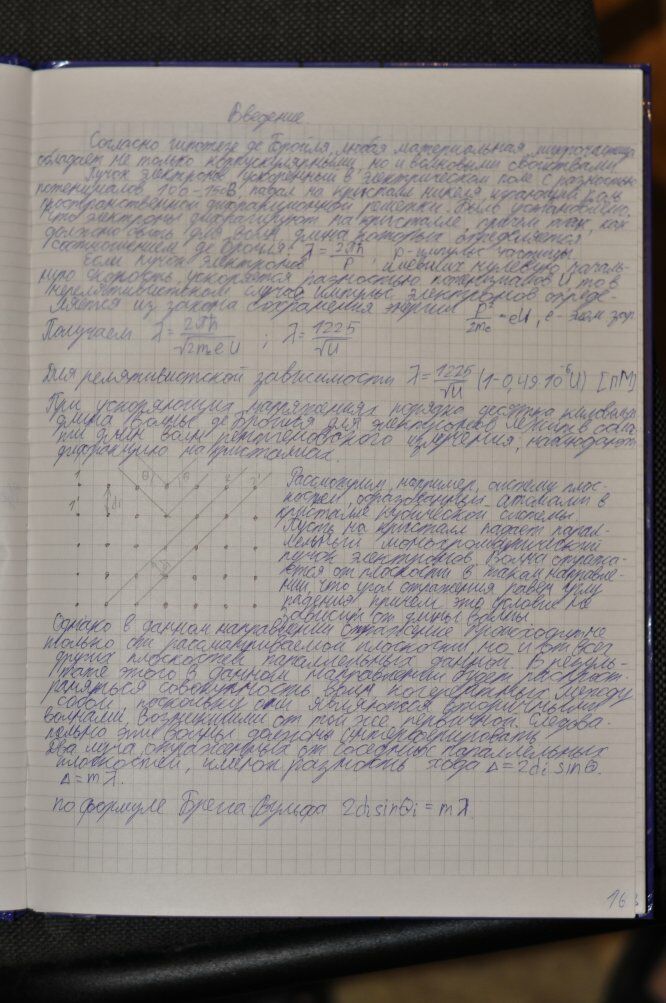 Введение
Согласно гипотезе де Бройля, любая материальная микрочастица
обладает не только корпускулярными, но и волновыми свойствами.
Пучок электронов, ускоренный в электрическом поле с разностью
потенциалов 100-150В, падал на кристалл никеля, играющий роль
пространственной дифракционной решетки. Было установлено,
что электроны дифрагируют на кристалле, причем так, как
должно быть для волн, длина которых определяется
соотношением де Бройля: λ = 2πħ/p, p-импульс частицы.
Если пучок электронов, имевших нулевую началь-
ную скорость ускоряется разностью потенциалов U то в
нерелятивистском случае импульс электронов опреде-
ляется из закона сохранения энергии p²/2mₑ = eU, e-
Получаем λ = 2πħ/√2mₑeU ; λ = 1225/√U
Для релятивистской зависимости λ = 1225/√U (1-0,49·10⁻⁶U) [пм]
При ускоряющих напряжениях порядка
длина волны де Бройля для электронов лежит в
длин волн рентгеновского излучения, наблюдают
дифракцию на кристаллах.
Рассмотрим, например, систему плос-
костей, образованных атомами в
кристалле кубической системы.
Пусть на кристалл падает парал-
лельный монохроматический
пучок электронов. Волна отража-
ются от плоскости в таком направле-
нии, что угол отражения равен углу
падения, причем это условие не
зависит от длины волны.
1 di θ 1 2
Однако в данном направлении отражение происходит не
только от рассматриваемой плоскости, но и от всех
других плоскостей параллельных данной. В резуль-
тате этого в данном направлении будет распрост-
раняться совокупность волн когерентных между
собой, поскольку они являются вторичными
волнами, возникшими от той же первичной. Следова-
тельно эти волны должны интерферировать.
Два луча, отраженных от соседних параллельных
плоскостей, имеют разность хода Δ=2di sinθ.
Δ=mλ.
по формуле Брега Вульфа 2di sinθi = mλ
16